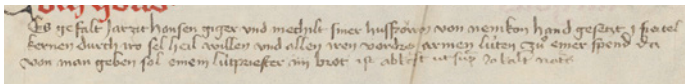 Es gefalt Jarzit hansen giger und mechilt siner husfrowen von nemkon hand gesetzt j fiertel
kernen durch iro sel heil willen und allen iren vordro armen lüten zu einer spend da
von man geben sol einem lütpriester im brot ist abläst ut supra